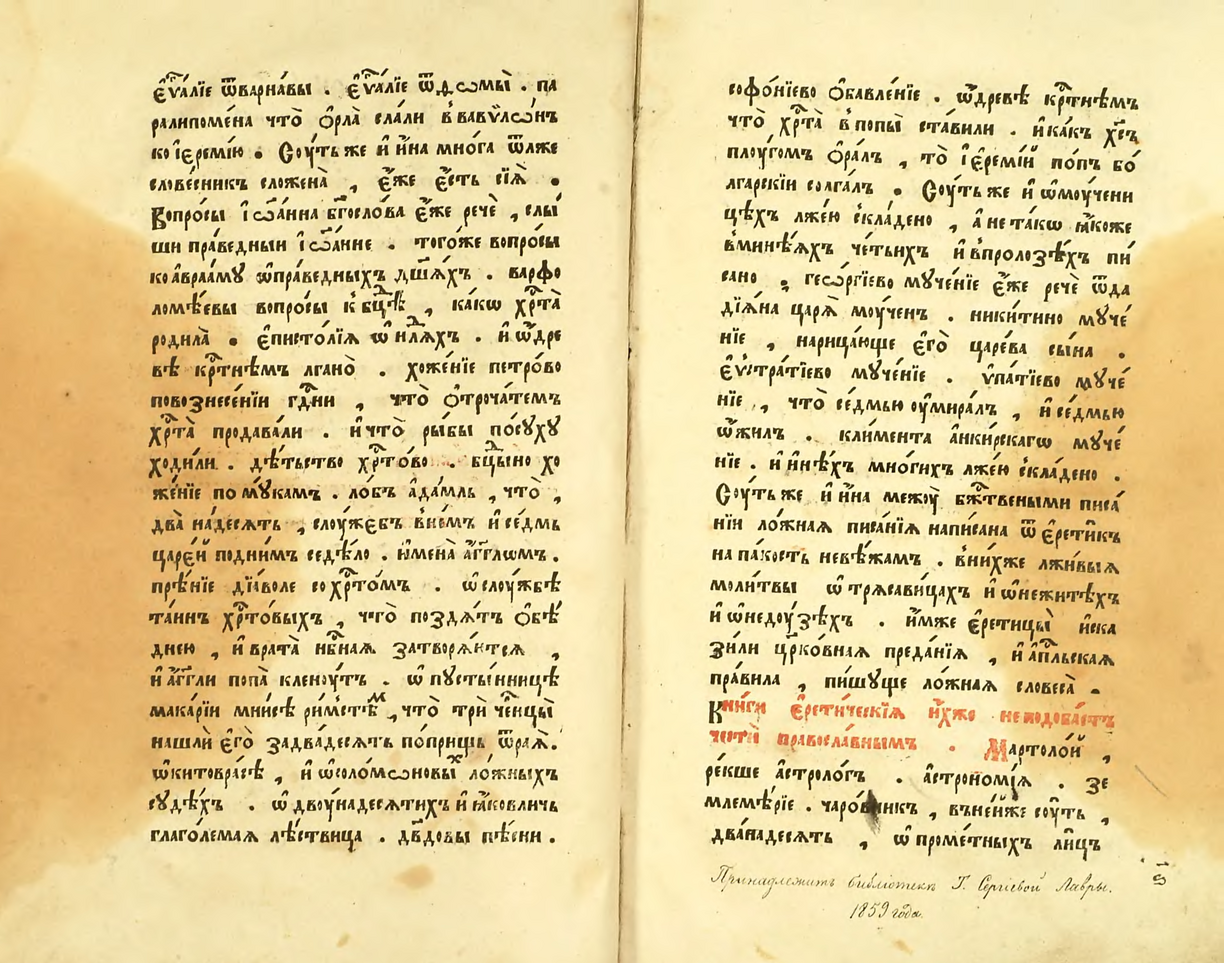 є҆ѵⷢ҇а́лїе ѿварна́вы . є҆ѵⷢ҇а́лїе ѿѳѡмы̀ . па
ралипоме́на что̀ ѻ҆рла̀ сла́ли в̾вавѷлѡ́нъ
ко і҆єремі́ю . Соу́ть же и҆ и҆́на мно́га ѿ лже
слове́сникъ сложена̀ , є҆́же є҆́сть сїѧ̀ .
Вопро́сы і҆ѡа́нна бг҃осло́ва є҆́же речѐ , слы́
ши пра́ведныи і҆ѡа́нне . того́же вопро́сы
ко а҆враа́мꙋ ѡ҆пра́ведныхъ дш҃а́хъ . варфо
ломѣ́евы вопро́сы к̾ бц҃ѣ , ка́кѡ хрⷭ҇та̀
родила̀ . є҆писто́лїѧ ѡ҆ нⷣлѧхъ . и҆ ѡ҆дре
вѣ крⷭ҇тнѣмъ лгано̀ . хоже́нїе петро́во
повознесе́нїи гдⷭ҇ни , что̀ ѻ҆троча́темъ
хрⷭ҇та̀ продава́ли . и҆что̀ ры́бы по́сꙋхꙋ
ходи́ли . дѣ́тьство хрⷭ҇то́во . бцⷣыно хо
же́нїе по мꙋ́камъ . ло́бъ а҆да́мль , что̀ ,
два̀ на́десѧть , слоу́жєбъ в̾не́мъ и҆ се́дмь
царе́й подни́мъ седѣ́ло . и҆мена̀ а҆́гг҃лѡмъ .
прѣ́нїе дїа́воле со хрⷭ҇то́мъ . ѡ҆ слоу́жбѣ
та́инъ хрⷭ҇то́выхъ , что̀ позда́тъ ѻ҆бѣ́
днею , и҆ врата̀ нбⷭ҇наѧ затворѧ́ютсѧ ,
и҆ а҆́гг҃ли попа̀ кленоу́тъ . ѡ҆ пꙋсты́нницѣ
мака́рїи мни́сѣ ри́мстѣⷨ , что̀ трѝ че́нцы̀
нашлѝ є҆го̀ задва́десѧть по́прищь ѿ раѧ̀ .
ѡ҆китовра́сѣ , и҆ ѡ҆соломѡ́новыⷯ ло́жныхъ
сꙋ́дѣхъ . ѡ҆ двоу́надесѧтихъ и҆ ꙗ҆́ковличь
глаго́лемаѧ лѣ́ствица . дв҃довы пѣ́сни .
софо́нїево ѻ҆бавле́нїе . ѡ҆древѣ крⷭ҇тнѣмъ
что̀ хрⷭ҇та̀ в̾ попы̀ ста́вили . и҆ ка́къ хⷭ҇съ
плоу́гомъ ѻ҆ра́лъ , то̀ і҆єремі́й по́пъ бо́
лгарскїи солга́лъ . Соу́ть же и҆ ѡ҆моучени
цѣхъ лже́ю с̾кла́дено , а҆ не та́кѡ ꙗ҆́коже
в̾мине́ѧхъ че́тьихъ и҆ в̾проло́зѣхъ пи́
сано , геѡ́ргїево мꙋче́нїе є҆́же речѐ ѿ да
дїѧ́на царѧ̀ моу́ченъ . ники́тино мꙋче́
нїе , нарица́юще є҆го̀ царе́ва сы́на .
є҆ѵстра́тїево мꙋче́нїе . ѵ҆па́тїево мꙋче́
нїе , что̀ се́дмью оу҆мира́лъ , и҆ се́дмью
ѡ҆́жилъ . кли́мента а҆нки́рскагѡ мꙋче́
нїе . и҆ и҆нѣ́хъ мно́гихъ лже́ю с̾кла́дено .
Соу́ть же и҆ и҆́на межоу̀ бжⷭ҇твеными писа́
нїи ло́жнаѧ писа́нїѧ напи́сана ѿ є҆рети́къ
на па́кость невѣ́жамъ . в̾ни́хже лжи́выѧ
моли́твы ѡ҆ трѧсави́цахъ и҆ ѡ҆нежи́тѣхъ
и҆ ѡ҆недоу́зѣхъ . и҆́мже є҆ретицы̀ и҆ска
зи́ли црⷪ҇ко́внаѧ преда́нїѧ , и҆ а҆пⷭ҇льскаѧ
пра́вила , пи́шꙋще ло́жнаѧ словеса̀ .
Кни́ги є҆рети́ческїѧ и҆́хже не подоба́етъ
чести̇̀ правосла́внымъ . Мартоло́й ,
ре́кше а҆строло́гъ . а҆строно́мїѧ . зе
млемѣ́рїе . чаро́вникъ , въне́йже соу́ть ,
двана́десѧть , ѡ҆ проме́тныхъ ли́цъ
Принадлежитъ библіотекѣ Т. Сергіевой Лавры.
1859 года.